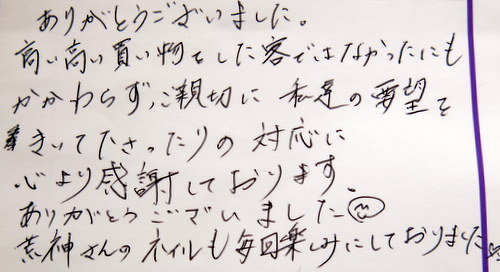 ありがとうございました。
高い高い買い物をした客ではなかったにも
かかわらず、ご親切に 私達の要望を
きいて下さったりの 対応に
心より感謝しております。
ありがとうございました
荒神さんのネイルも毎回楽しみにしておりました